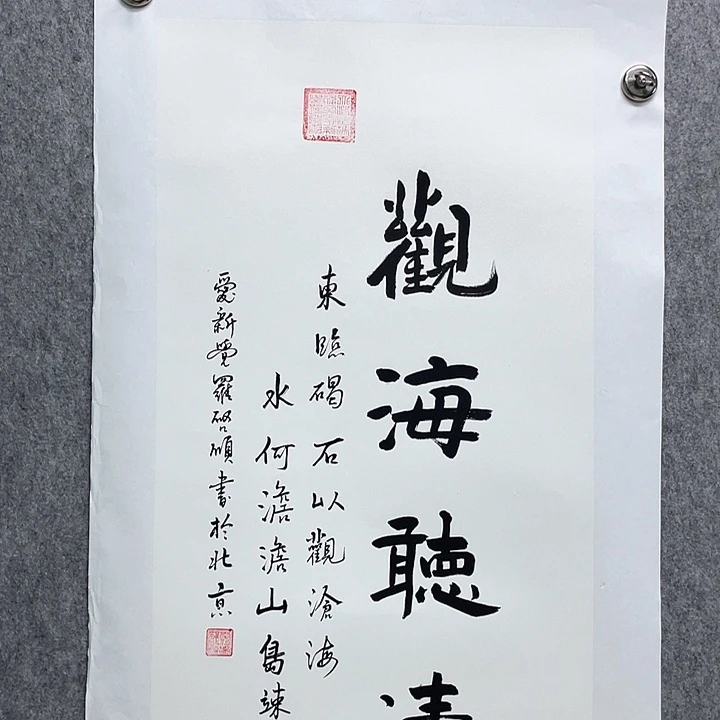 觀海聽
東臨碣石以觀滄海
水何澹澹山島竦
愛新覺羅啓書於北京